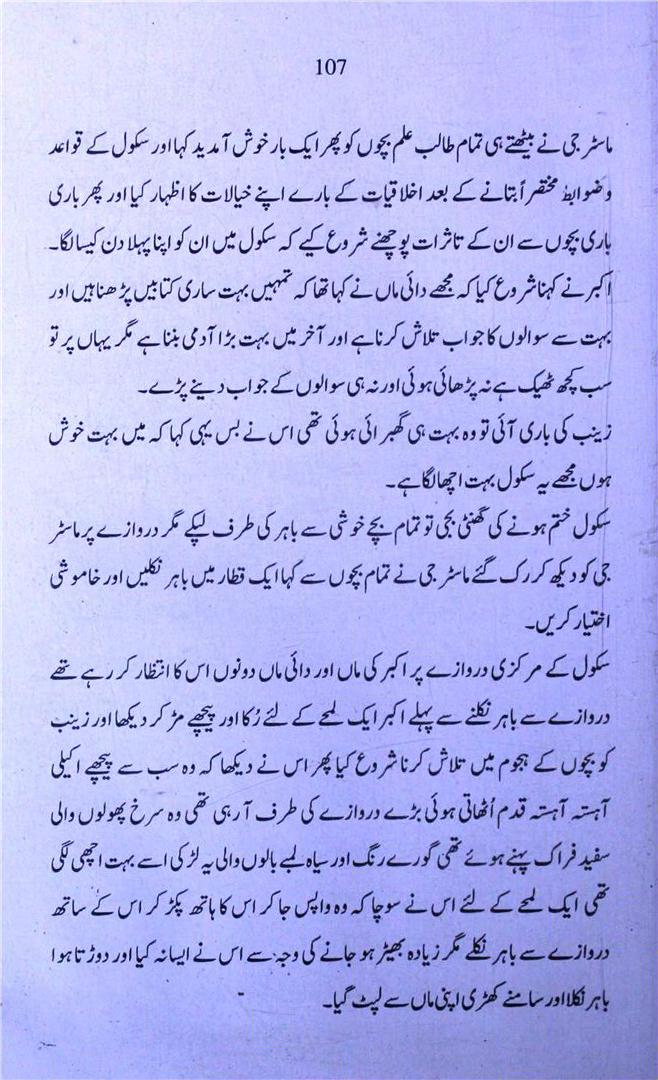 107
ماسٹر جی نے بیٹھتے ہی تمام طالب علم بچوں کو پھر ایک بار خوش آمدید کہا اور سکول کے قواعد
و ضوابط مختصراً بتانے کے بعد اخلاقیات کے بارے اپنے خیالات کا اظہار کیا اور پھر باری
باری بچوں سے ان کے تاثرات پوچھنے شروع کیے کہ سکول میں ان کو اپنا پہلا دن کیسا لگا۔
اکبر نے کہنا شروع کیا کہ مجھے دائی ماں نے کہا تھا کہ تمہیں بہت ساری کتابیں پڑھنا ہیں اور
بہت سے سوالوں کا جواب تلاش کرنا ہے اور آخر میں بہت بڑا آدمی بننا ہے مگر یہاں پر تو
سب کچھ ٹھیک ہے نہ پڑھائی ہوئی اور نہ ہی سوالوں کے جواب دینے پڑے۔
زینب کی باری آئی تو وہ بہت ہی گھبرائی ہوئی تھی اس نے بس یہی کہا کہ میں بہت خوش
ہوں مجھے یہ سکول بہت اچھا لگا ہے۔
سکول ختم ہونے کی گھنٹی بجی تو تمام بچے خوشی سے باہر کی طرف لپکے مگر دروازے پر ماسٹر
جی کو دیکھ کر رک گئے ماسٹر جی نے تمام بچوں سے کہا ایک قطار میں باہر نکلیں اور خاموشی
اختیار کریں۔
سکول کے مرکزی دروازے پر اکبر کی ماں اور دائی ماں دونوں اس کا انتظار کر رہے تھے
دروازے سے باہر نکلنے سے پہلے اکبر ایک لمحے کے لئے رُکا اور پیچھے مڑ کر دیکھا اور زینب
کو بچوں کے ہجوم میں تلاش کرنا شروع کیا پھر اس نے دیکھا کہ وہ سب سے پیچھے اکیلی
آہستہ آہستہ قدم اُٹھاتی ہوئی بڑے دروازے کی طرف آ رہی تھی وہ سرخ پھولوں والی
سفید فراک پہنے ہوئے تھی گورے رنگ اور سیاہ لمبے بالوں والی یہ لڑکی اسے بہت اچھی لگی
تھی ایک لمحے کے لئے اس نے سوچا کہ وہ واپس جا کر اس کا ہاتھ پکڑ کر اس کے ساتھ
دروازے سے باہر نکلے مگر زیادہ بھیڑ ہو جانے کی وجہ سے اس نے ایسا نہ کیا اور دوڑتا ہوا
باہر نکلا اور سامنے کھڑی اپنی ماں سے لپٹ گیا۔